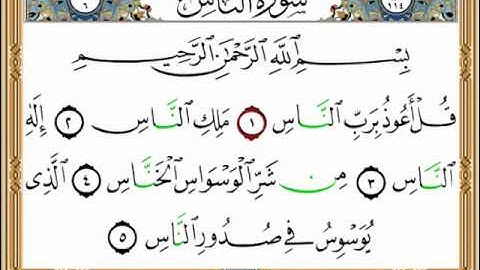 ٦ سُورَةُ النَّاسِ ١١٤
بِسْمِ اللَّهِ الرَّحْمَٰنِ الرَّحِيمِ
قُلْ أَعُوذُ بِرَبِّ النَّاسِ ١ مَلِكِ النَّاسِ ٢ إِلَٰهِ
النَّاسِ ٣ مِن شَرِّ الْوَسْوَاسِ الْخَنَّاسِ ٤ الَّذِي
يُوَسْوِسُ فِي صُدُورِ النَّاسِ ٥